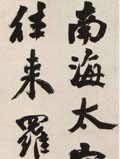 南海太守
往来羅